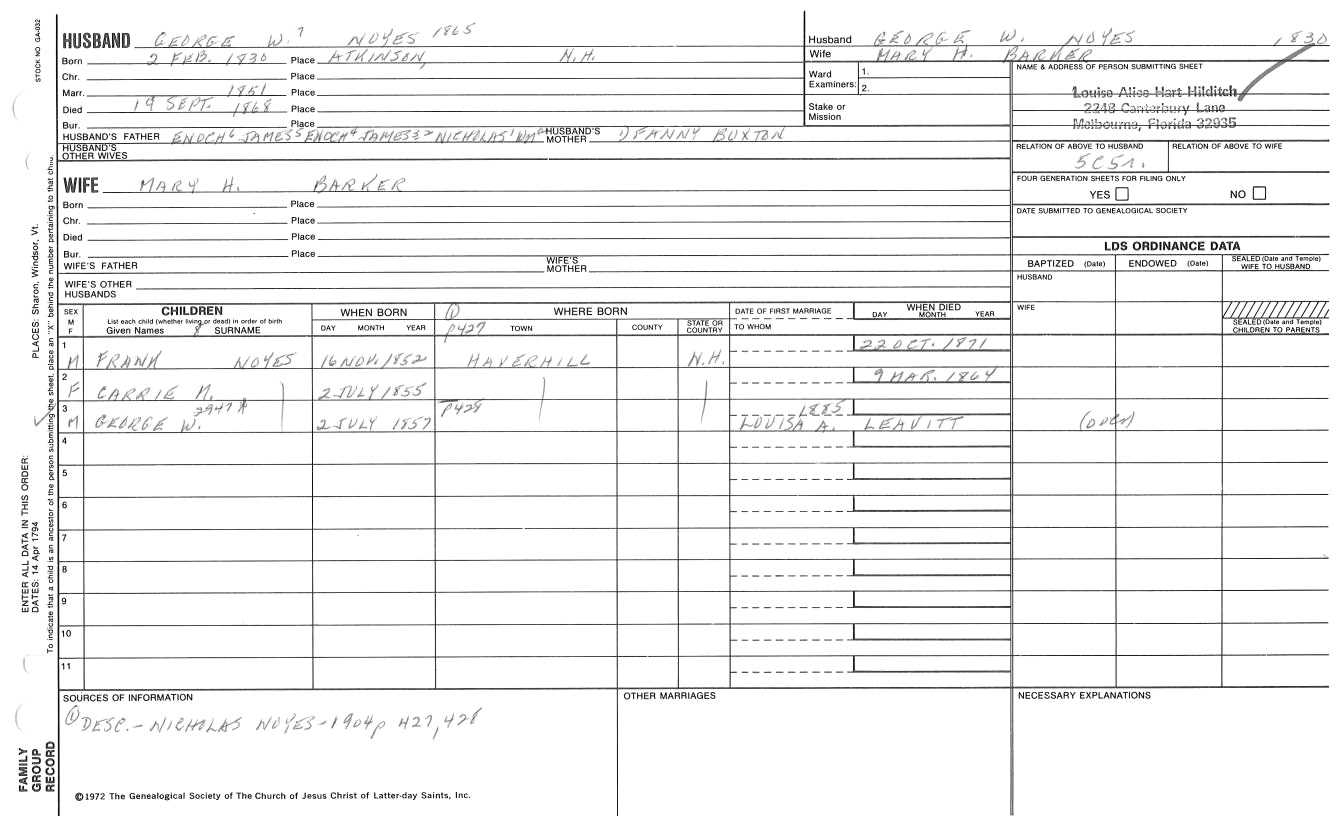 STOCK NO GA-032
HUSBAND GEORGE W. 7 NOYES 1865
Born 2 FEB. 1830 Place ATKINSON, N.H.
Chr. Place
Marr. 1851 Place
Died 19 SEPT. 1868 Place
Bur. Place
HUSBAND'S FATHER ENOCH 6 JAMES 5 ENOCH 4 JAMES 3 2 NICHOLAS 1 WM HUSBAND'S MOTHER FANNY BUXTON
HUSBAND'S OTHER WIVES
Husband GEORGE W. NOYES 1830
Wife MARY H. BARKER
Ward Examiners: 1.
2.
Stake or Mission
NAME & ADDRESS OF PERSON SUBMITTING SHEET
Louise Alice Hart Hilditch
2248 Canterbury Lane
Melbourne, Florida 32935
RELATION OF ABOVE TO HUSBAND RELATION OF ABOVE TO WIFE
5C5r.
FOUR GENERATION SHEETS FOR FILING ONLY
YES NO
DATE SUBMITTED TO GENEALOGICAL SOCIETY
WIFE MARY H. BARKER
Born Place
Chr. Place
Died Place
Bur. Place
WIFE'S FATHER WIFE'S MOTHER
WIFE'S OTHER HUSBANDS
LDS ORDINANCE DATA
BAPTIZED (Date) ENDOWED (Date) SEALED (Date and Temple) WIFE TO HUSBAND
HUSBAND
WIFE
SEALED (Date and Temple) CHILDREN TO PARENTS
SEX M F CHILDREN List each child (whether living or dead) in order of birth Given Names 8 SURNAME
WHEN BORN DAY MONTH YEAR
① p427 WHERE BORN TOWN COUNTY STATE OR COUNTRY
DATE OF FIRST MARRIAGE TO WHOM
WHEN DIED DAY MONTH YEAR
1 M FRANK NOYES 16 NOV. 1852 HAVERHILL N.H. 22 OCT. 1871
2 F CARRIE M. 2 JULY 1855 9 MAR. 1864
3 M GEORGE W. 2947A 2 JULY 1857 p428 1885 LOUISA A. LEAVITT (OVER)
4
5
6
7
8
9
10
11
SOURCES OF INFORMATION
① DESC. - NICHOLAS NOYES - 1904 p 427, 428
OTHER MARRIAGES
NECESSARY EXPLANATIONS
©1972 The Genealogical Society of The Church of Jesus Christ of Latter-day Saints, Inc.
FAMILY GROUP RECORD
ENTER ALL DATA IN THIS ORDER:
DATES: 14 Apr 1794
PLACES: Sharon, Windsor, Vt.
To indicate that a child is an ancestor of the person submitting the sheet, place an "X" behind the number pertaining to that child.